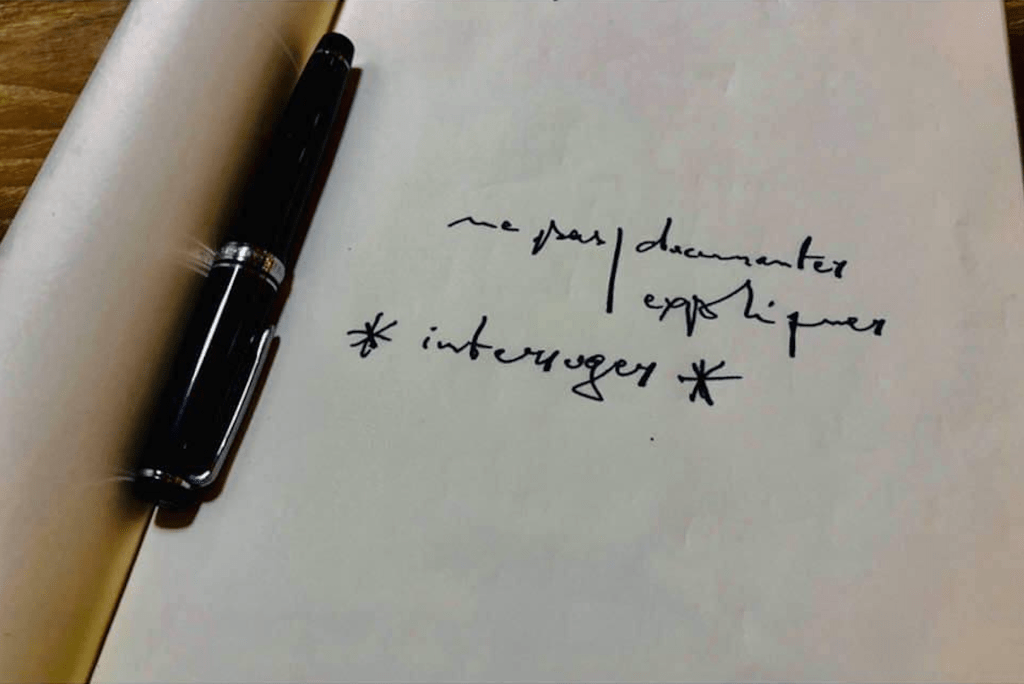 ne pas | documenter
expliquer
* interroger *